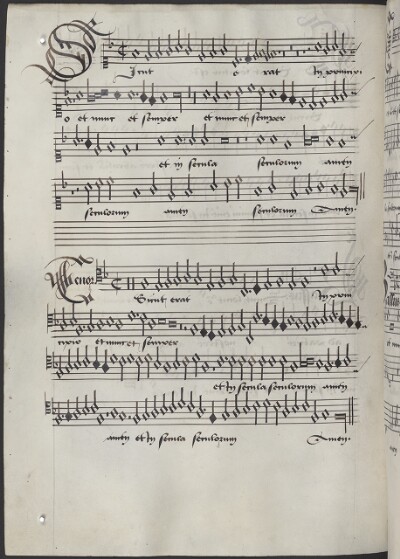 S Icut erat In princi-
o et nunc et semper et nunc et semper
et in secula seculorum amen
seculorum amen seculorum Amen.
Tenor Sicut erat In prin
cipio et nunc et semper
et In secula seculorum amen
amen et In secula seculorum Amen.